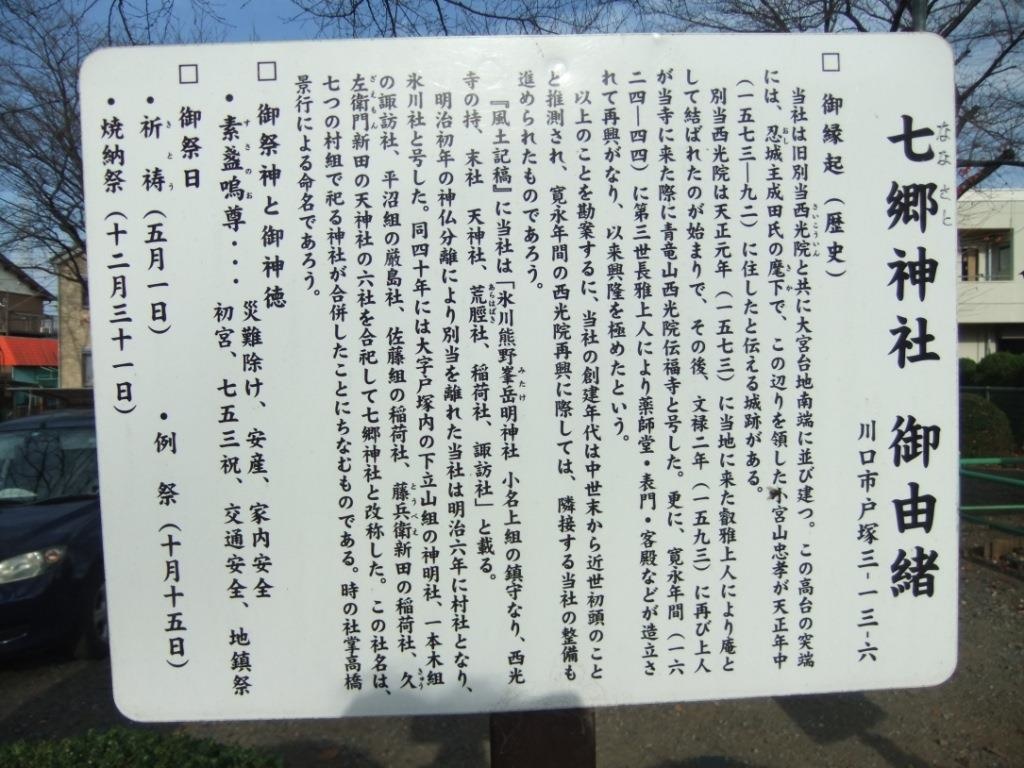 七郷神社　御由緒
ななさと
川口市戸塚三-一三-六
□　御縁起（歴史）
当社は旧別当西光院と共に大宮台地南端に並び建つ。この高台の突端
には、忍城主成田氏の麾下で、この辺りを領した小宮山忠孝が天正年中
（一五七三―九二）に住したと伝える城跡がある。
別当西光院は天正元年（一五七三）に当地に来た叡雅上人により庵と
して結ばれたのが始まりで、その後、文禄二年（一五九三）に再び上人
が当寺に来た際に青竜山西光院伝福寺と号した。更に、寛永年間（一六
二四―四四）に第三世長雅上人により薬師堂・表門・客殿などが造立さ
れて再興がなり、以来興隆を極めたという。
以上のことを勘案するに、当社の創建年代は中世末から近世初頭のこと
と推測され、寛永年間の西光院再興に際しては、隣接する当社の整備も
進められたものであろう。
『風土記稿』に当社は「氷川熊野峯岳明神社　小名上組の鎮守なり、西光
寺の持、末社　天神社、荒脛社、稲荷社、諏訪社」と載る。
明治初年の神仏分離により別当を離れた当社は明治六年に村社となり、
氷川社と号した。同四十年には大字戸塚内の下立山組の神明社、一本木組
の諏訪社、平沼組の厳島社、佐藤組の稲荷社、藤兵衛新田の稲荷社、久
左衛門新田の天神社の六社を合祀して七郷神社と改称した。この社名は、
七つの村組で祀る神社が合併したことにちなむものである。時の社掌高橋
景行による命名であろう。
□　御祭神と御神徳
・素盞嗚尊・・・　災難除け、安産、家内安全
初宮、七五三祝、交通安全、地鎮祭
□　御祭日
・祈　祷（五月一日）　・例　祭（十月十五日）
・焼納祭（十二月三十一日）